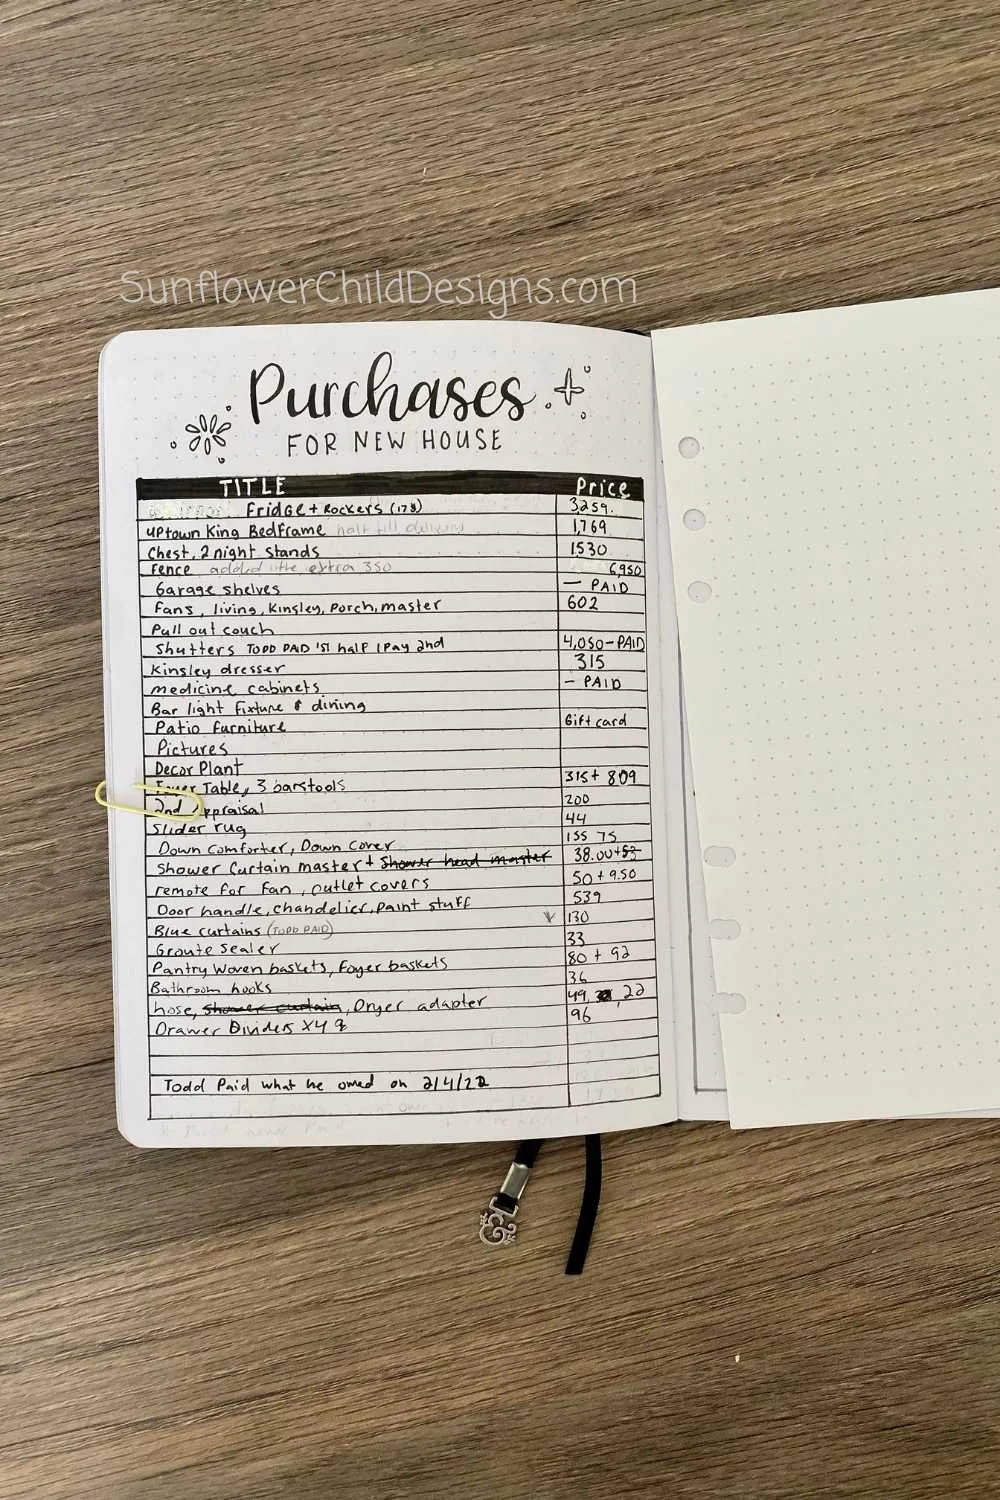 SunflowerChildDesigns.com
Purchases
FOR NEW HOUSE
TITLE Price
Fridge + Rockers (178) 3,259.
Uptown King Bedframe half till delivery 1,769
Chest, 2 night stands 1530
Fence added the extra 350 6,950
Garage shelves — PAID
Fans, living, Kinsley, Porch, master 602
Pull out couch
Shutters TODD PAID 1st half I Pay 2nd 4,050-PAID
Kinsley dresser 315
medicine cabinets — PAID
Bar light fixture & dining
Patio furniture Gift card
Pictures
Decor Plant
Foyer Table, 3 barstools 315 + 809
2nd Appraisal 200
Slider rug 44
Down comforter, Down cover 155 75
Shower Curtain master + Shower head master 38.00+53
remote for fan, outlet covers 50 + 9.50
Door handle, chandelier, paint stuff 539
Blue curtains (TODD PAID) 130
Groute Sealer 33
Pantry Woven baskets, Foyer baskets 80 + 92
Bathroom hooks 36
hose, Shower curtain, Dryer adapter 49, 22
Drawer Dividers X4 96
Todd Paid what he owed on 2/4/22